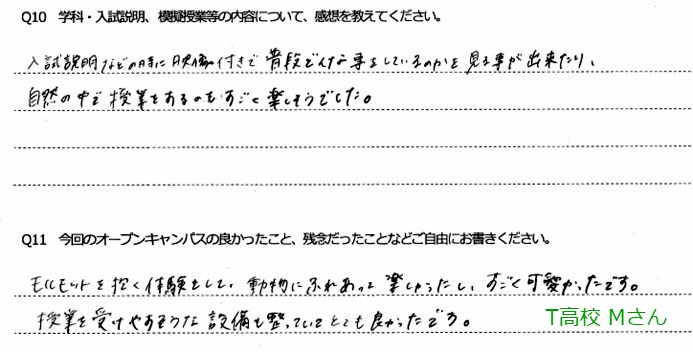 Q10 学科・入試説明、模擬授業等の内容について、感想を教えてください。
入試説明などの時に映像付きで普段どんな事をしているのかを見る事が出来たり、
自然の中で授業をするのもすごく楽しそうでした。
Q11 今回のオープンキャンパスの良かったこと、残念だったことなどご自由にお書きください。
モルモットを抱く体験をして、動物にふれあって楽しかったし、すごく可愛かったです。
授業を受けやすそうな設備も整っていてとても良かったです。
T高校 Mさん